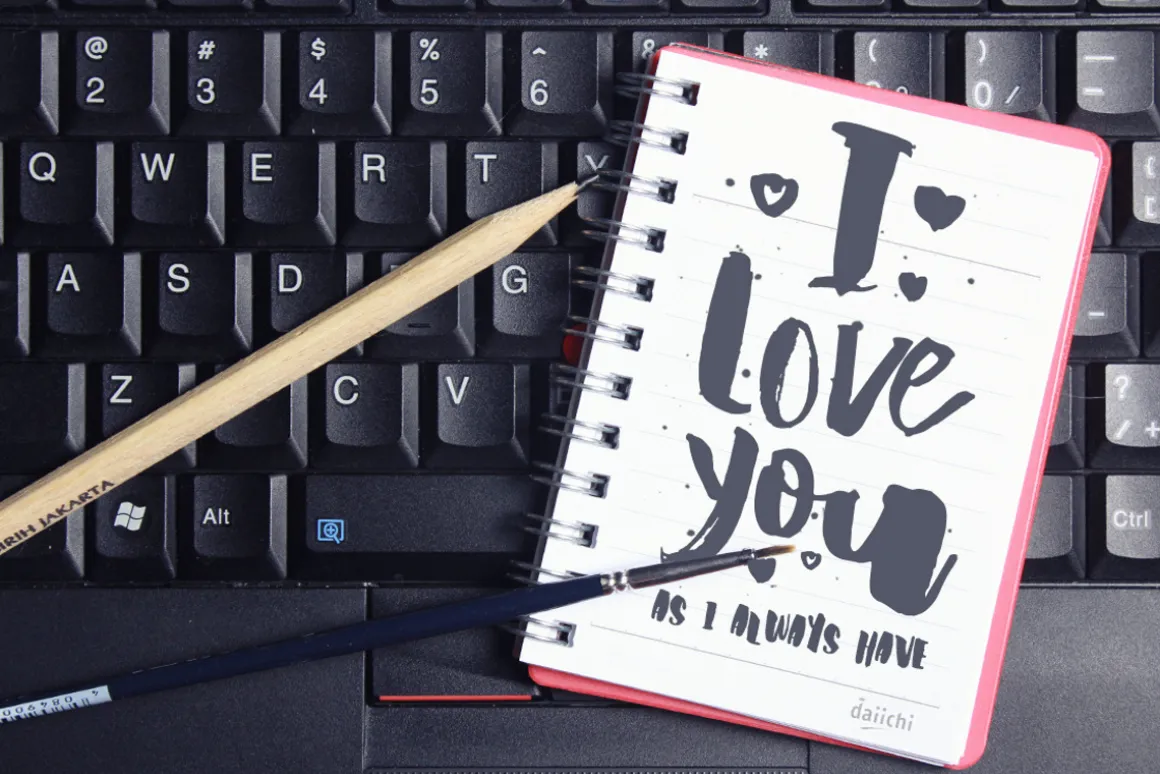 @ # $ % ^ & * ( )
2 3 4 5 6 0 /
Q W E R T Y
A S D G
Z C V
Alt
Ctrl
? / +
I
Love
you
AS I ALWAYS HAVE
daiichi
JAKARTA